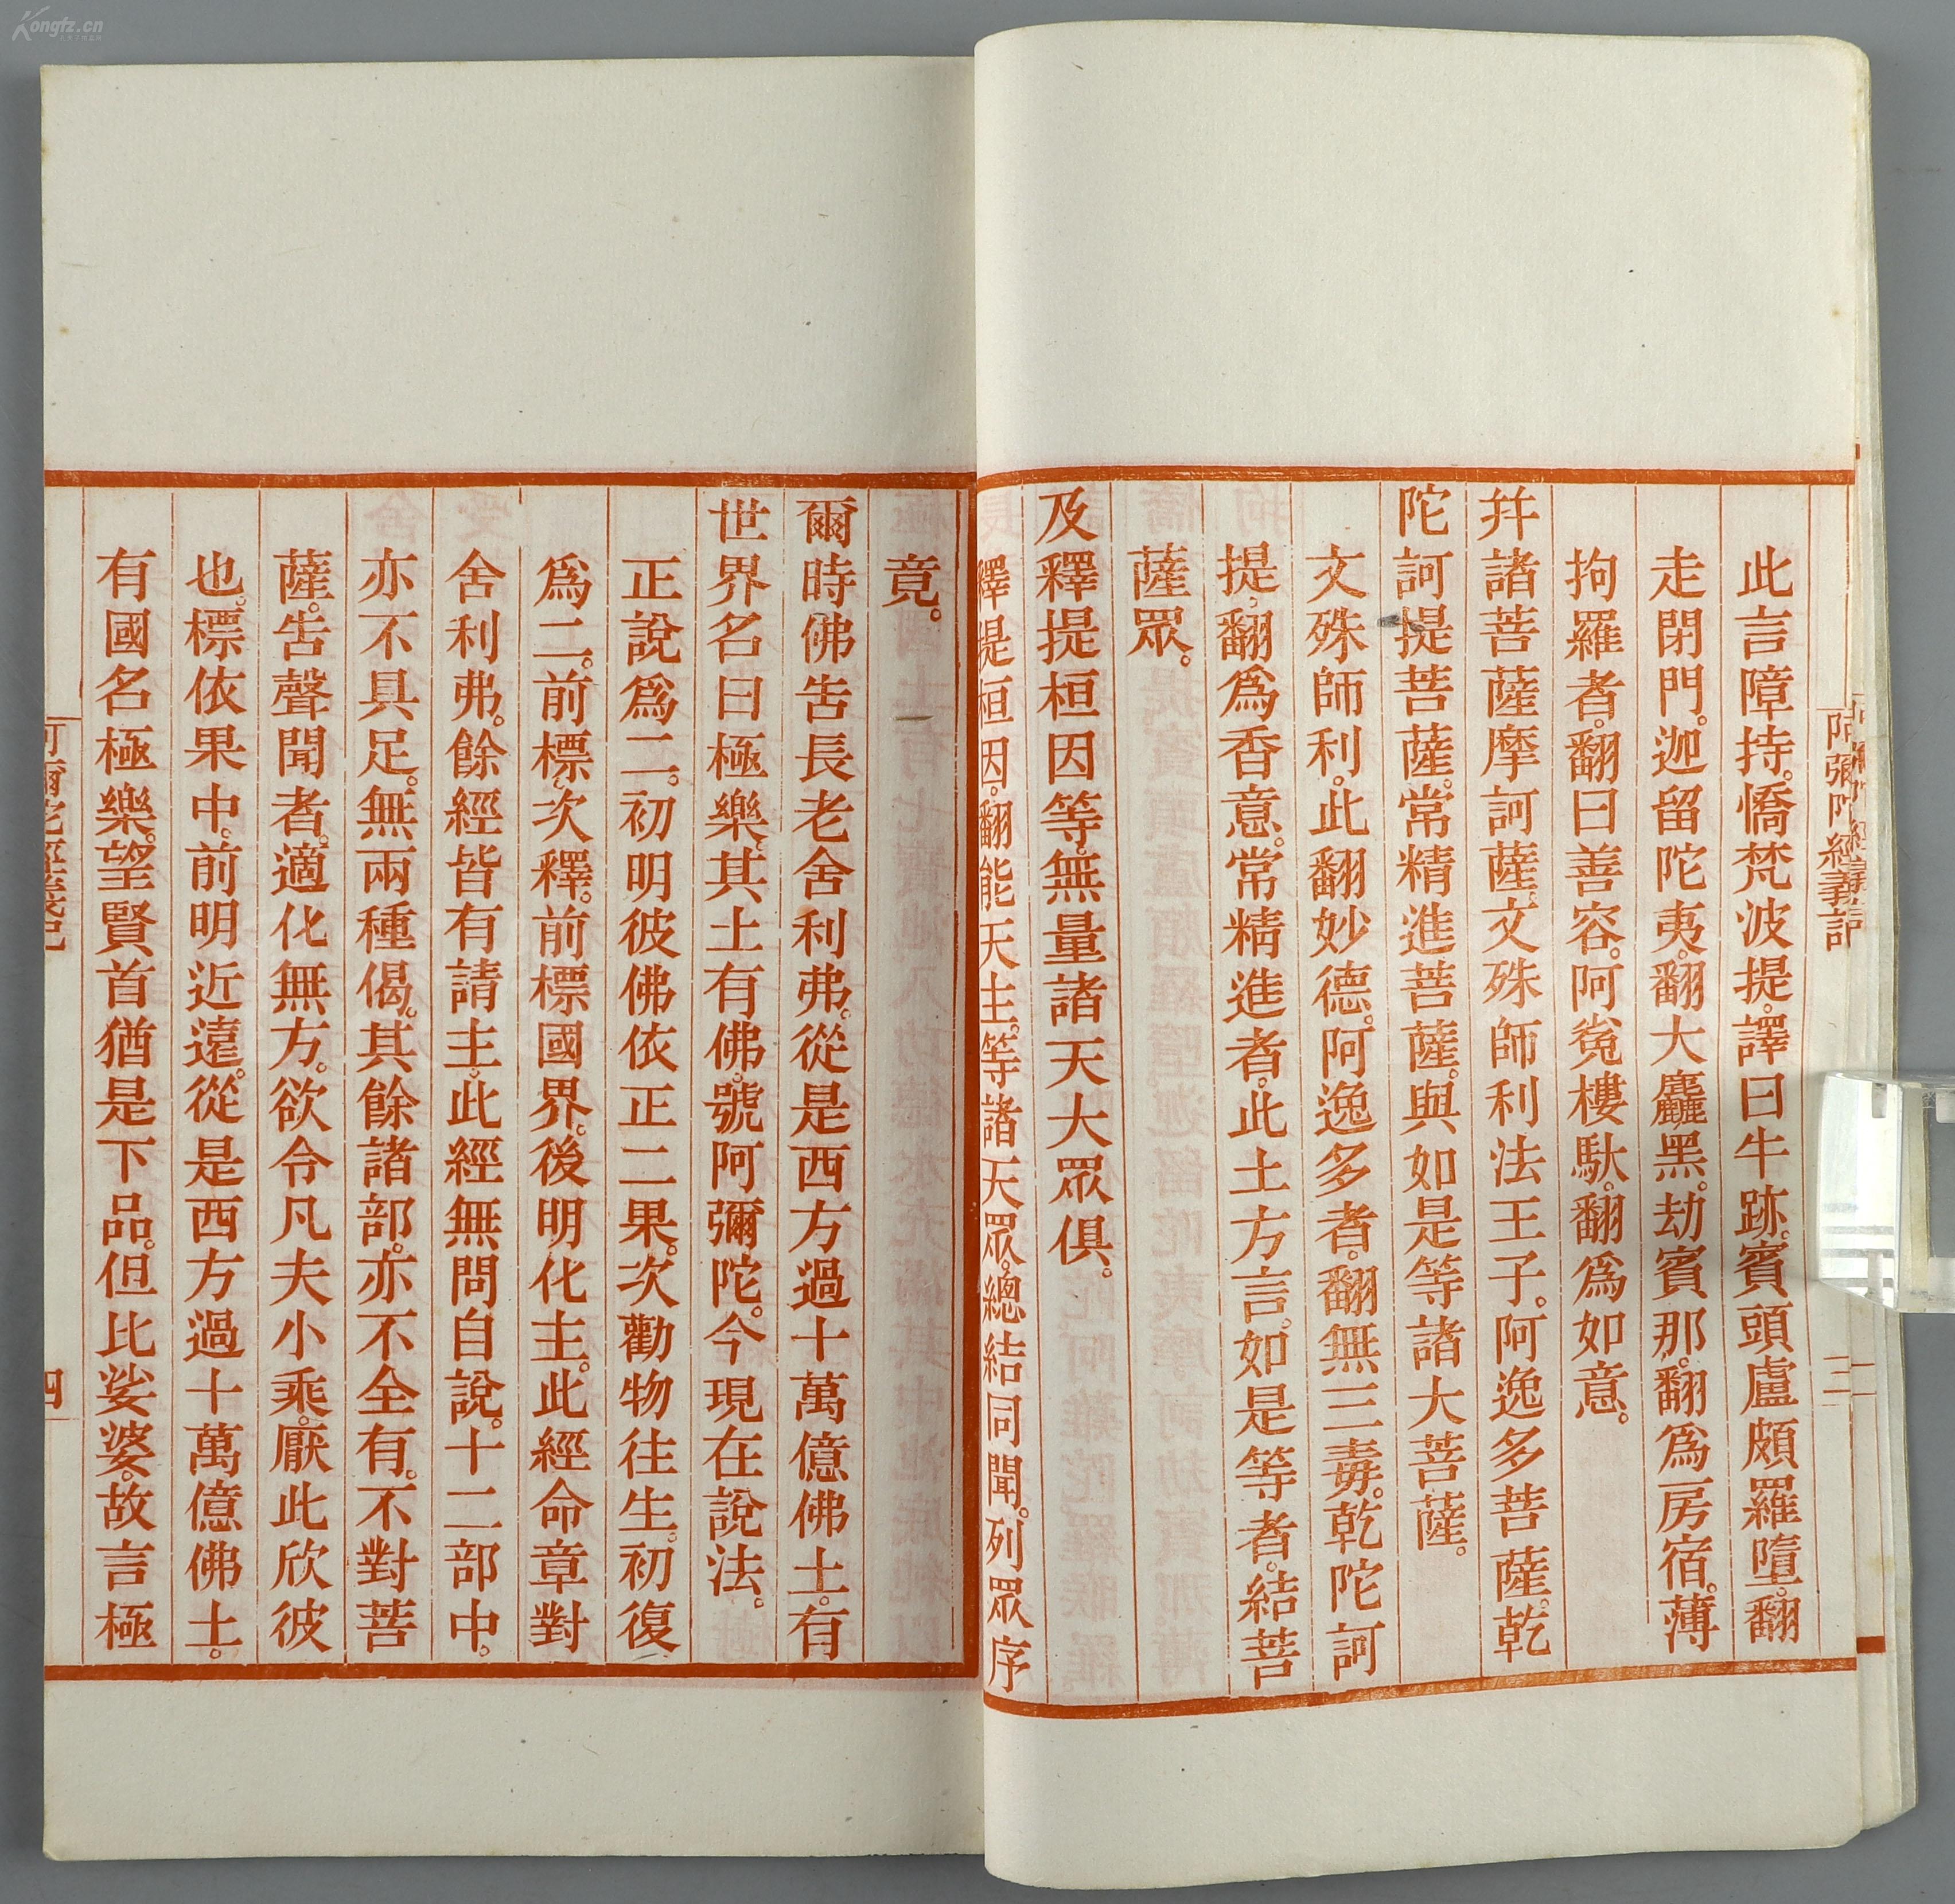 Kongfz.cn
阿彌陀經義記
三
此言障持。憍梵波提。譯曰牛跡。賓頭盧頗羅墮。翻
走閉門。迦留陀夷。翻大麤黑。劫賓那。翻爲房宿。薄
拘羅者。翻曰善容。阿㝹樓馱。翻爲如意。
幷諸菩薩摩訶薩。文殊師利法王子。阿逸多菩薩。乾
陀訶提菩薩。常精進菩薩。與如是等諸大菩薩。
文殊師利。此翻妙德。阿逸多者。翻無三毒。乾陀訶
提。翻爲香意。常精進者。此土方言。如是等者。結菩
薩眾。
及釋提桓因等。無量諸天大眾俱。
釋提桓因。翻能天主。等諸天眾。總結同聞。列眾序
竟。
爾時佛告長老舍利弗。從是西方過十萬億佛土。有
世界名曰極樂。其土有佛。號阿彌陀。今現在說法。
正說爲二。初明彼佛依正二果。次勸物往生。初復
爲二。前標。次釋。前標國界。後明化主。此經命章對
舍利弗。餘經皆有請主。此經無問自說。十二部中。
亦不具足。無兩種偈。其餘諸部。亦不全有。不對菩
薩。告聲聞者。適化無方。欲令凡夫小乘。厭此欣彼
也。標依果中。前明近遠。從是西方過十萬億佛土。
有國名極樂。望賢首猶是下品。但比娑婆。故言極
阿彌陀經義記
四